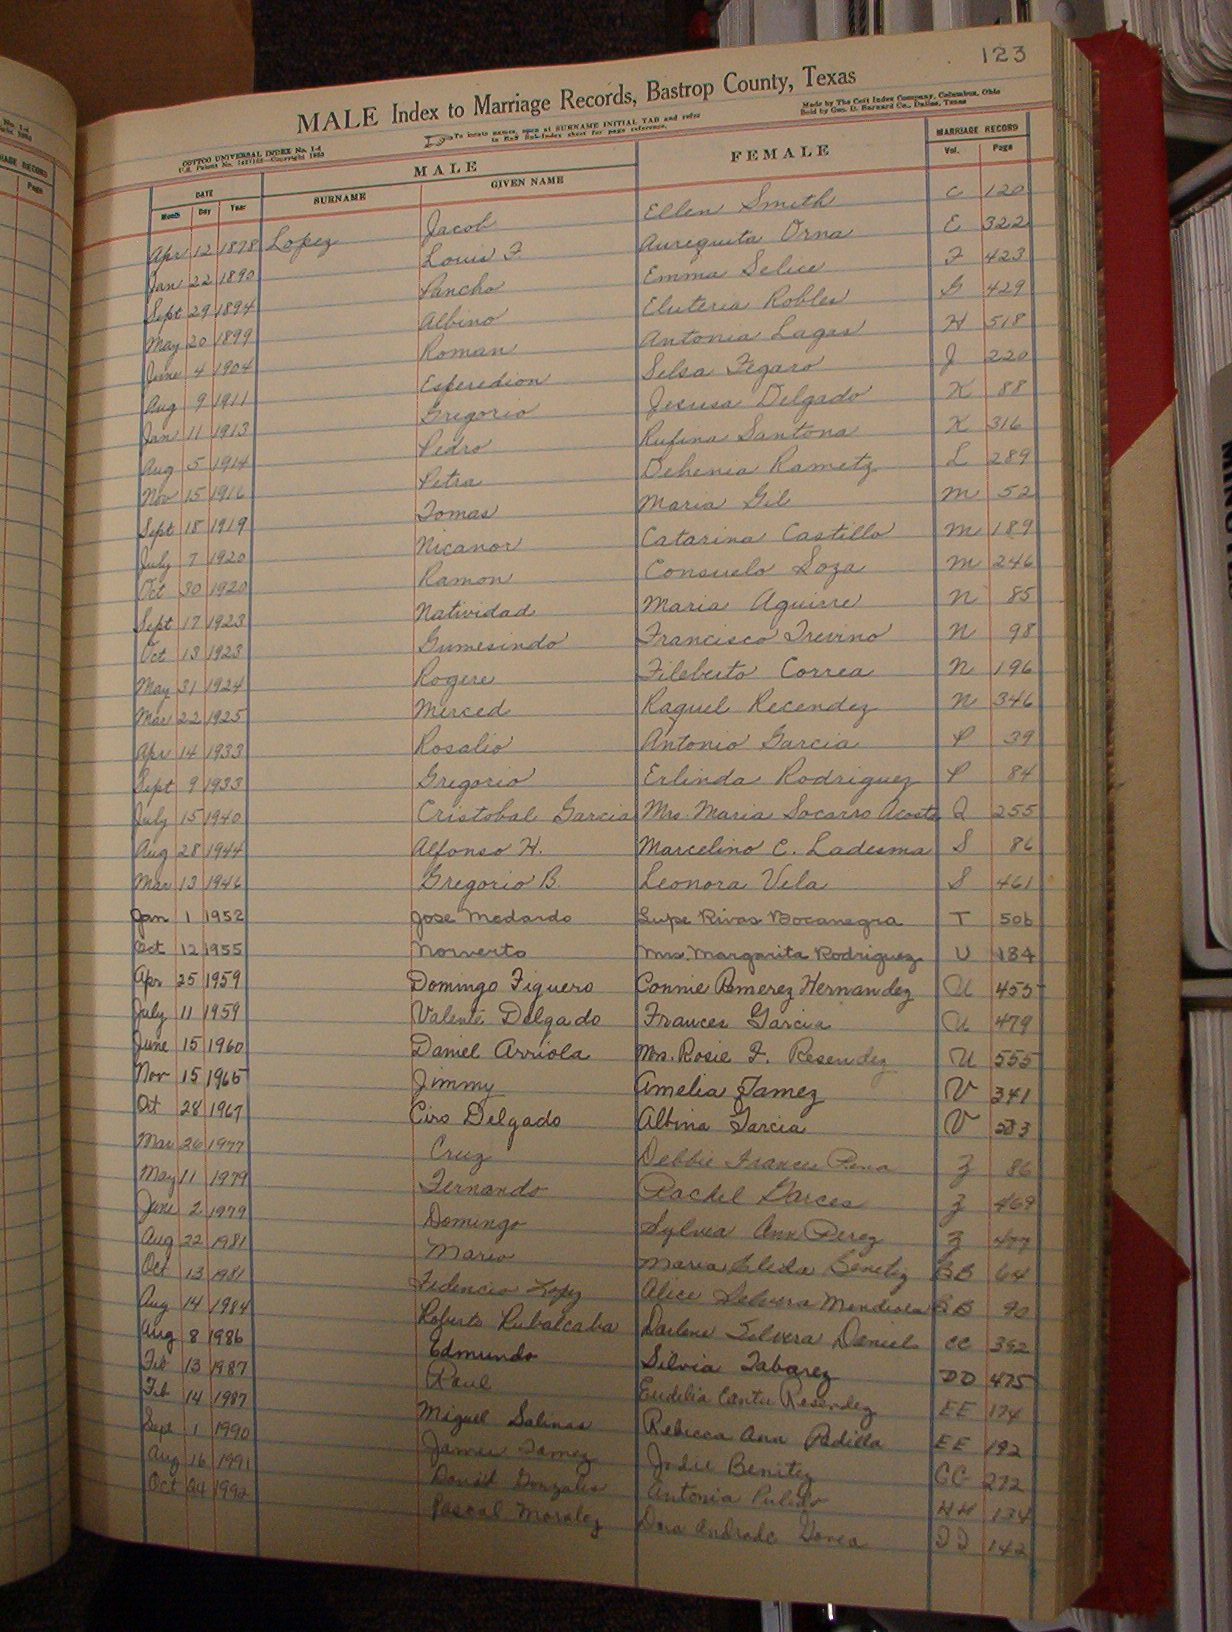 123
MALE Index to Marriage Records, Bastrop County, Texas
COTTCO UNIVERSAL INDEX No. 1-4
To locate names, open at SURNAME INITIAL TAB and refer
to Sub-Index sheet for page reference.
Made by The Cott Index Company, Columbus, Ohio
Sold by Geo. D. Barnard Co., Dallas, Texas
DATE MALE FEMALE MARRIAGE RECORD
Month Day Year SURNAME GIVEN NAME Vol. Page
Apr 12 1878 Lopez Jacob Ellen Smith C 120
Jan 22 1890 Louis F. Aurequita Orna E 322
Sept 29 1894 Pancho Emma Selice F 423
May 20 1899 Albino Eluteria Robles G 429
June 4 1904 Roman Antonia Lagas H 518
Aug 9 1911 Esperedion Selsa Fegaro J 220
Jan 11 1913 Gregorio Jesusa Delgado K 88
Aug 5 1914 Pedro Rufina Santona K 316
Nov 15 1916 Petra Dehenia Rametz L 289
Sept 18 1919 Tomas Maria Gil M 52
July 7 1920 Nicanor Catarina Castillo M 189
Oct 30 1920 Ramon Consuelo Soza M 246
Sept 17 1923 Natividad Maria Aguirre N 85
Oct 13 1923 Gumesindo Francisco Trevino N 98
May 31 1924 Rogere Fileberto Correa N 196
Mar 22 1925 Merced Raquel Recendez N 346
Apr 14 1933 Rosalio Antonio Garcia P 39
Sept 9 1933 Gregorio Erlinda Rodriguez P 84
July 15 1940 Cristobal Garcia Mrs. Maria Socarro Acosta Q 255
Aug 28 1944 Alfonso H. Marcelino C. Ladesma S 86
Mar 13 1946 Gregorio B. Leonora Vela S 461
Jan 1 1952 Jose Medardo Lupe Rivas Bocanegra T 506
Oct 12 1955 Norverto Mrs. Margarita Rodriguez U 134
Apr 25 1959 Domingo Figuero Connie Ramerez Hernandez U 455
July 11 1959 Valente Delgado Frances Garcia U 479
June 15 1960 Daniel Arriola Mrs. Rosie F. Resendez U 555
Nov 15 1965 Jimmy Amelia Tamez V 341
Oct 28 1967 Ciro Delgado Albina Garcia V 533
Mar 26 1977 Cruz Debbie Frances Pena Z 86
May 11 1979 Fernando Rachel Garces Z 469
June 2 1979 Domingo Sylvia Ann Perez Z 477
Aug 22 1981 Mario Maria Elida Benitez BB 64
Oct 13 1981 Fedencio Lopez Alice Selvera Mendiola BB 90
Aug 14 1984 Roberto Rubalcaba Darlene Silvera Daniels CC 392
Aug 8 1986 Edmundo Silvia Tabarez DD 475
Feb 13 1987 Raul Eudelia Cantu Resendez EE 174
Feb 14 1987 Miguel Salinas Rebecca Ann Padilla EE 192
Sept 1 1990 James Tamez Jodie Benitez GG 272
Aug 16 1991 David Gonzales Antonia Pulido HH 134
Oct 24 1992 Pascal Moralez Dora Andrade II 142